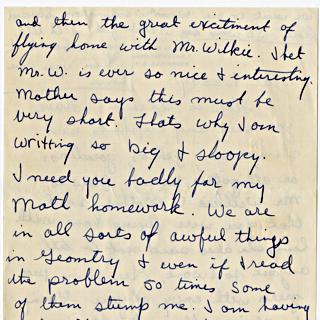 and then the great excitment of
flying home with Mr. Wilkie. I bet
Mr. W. is ever so nice & interesting.
Mother says this must be
very short. Thats why I am
writting so big & sloopy.
I need you badly for my
Math homework. We are
in all sorts of awful things
in Geomtry & even if I read
the problem 50 times some
of them stump me. I am having